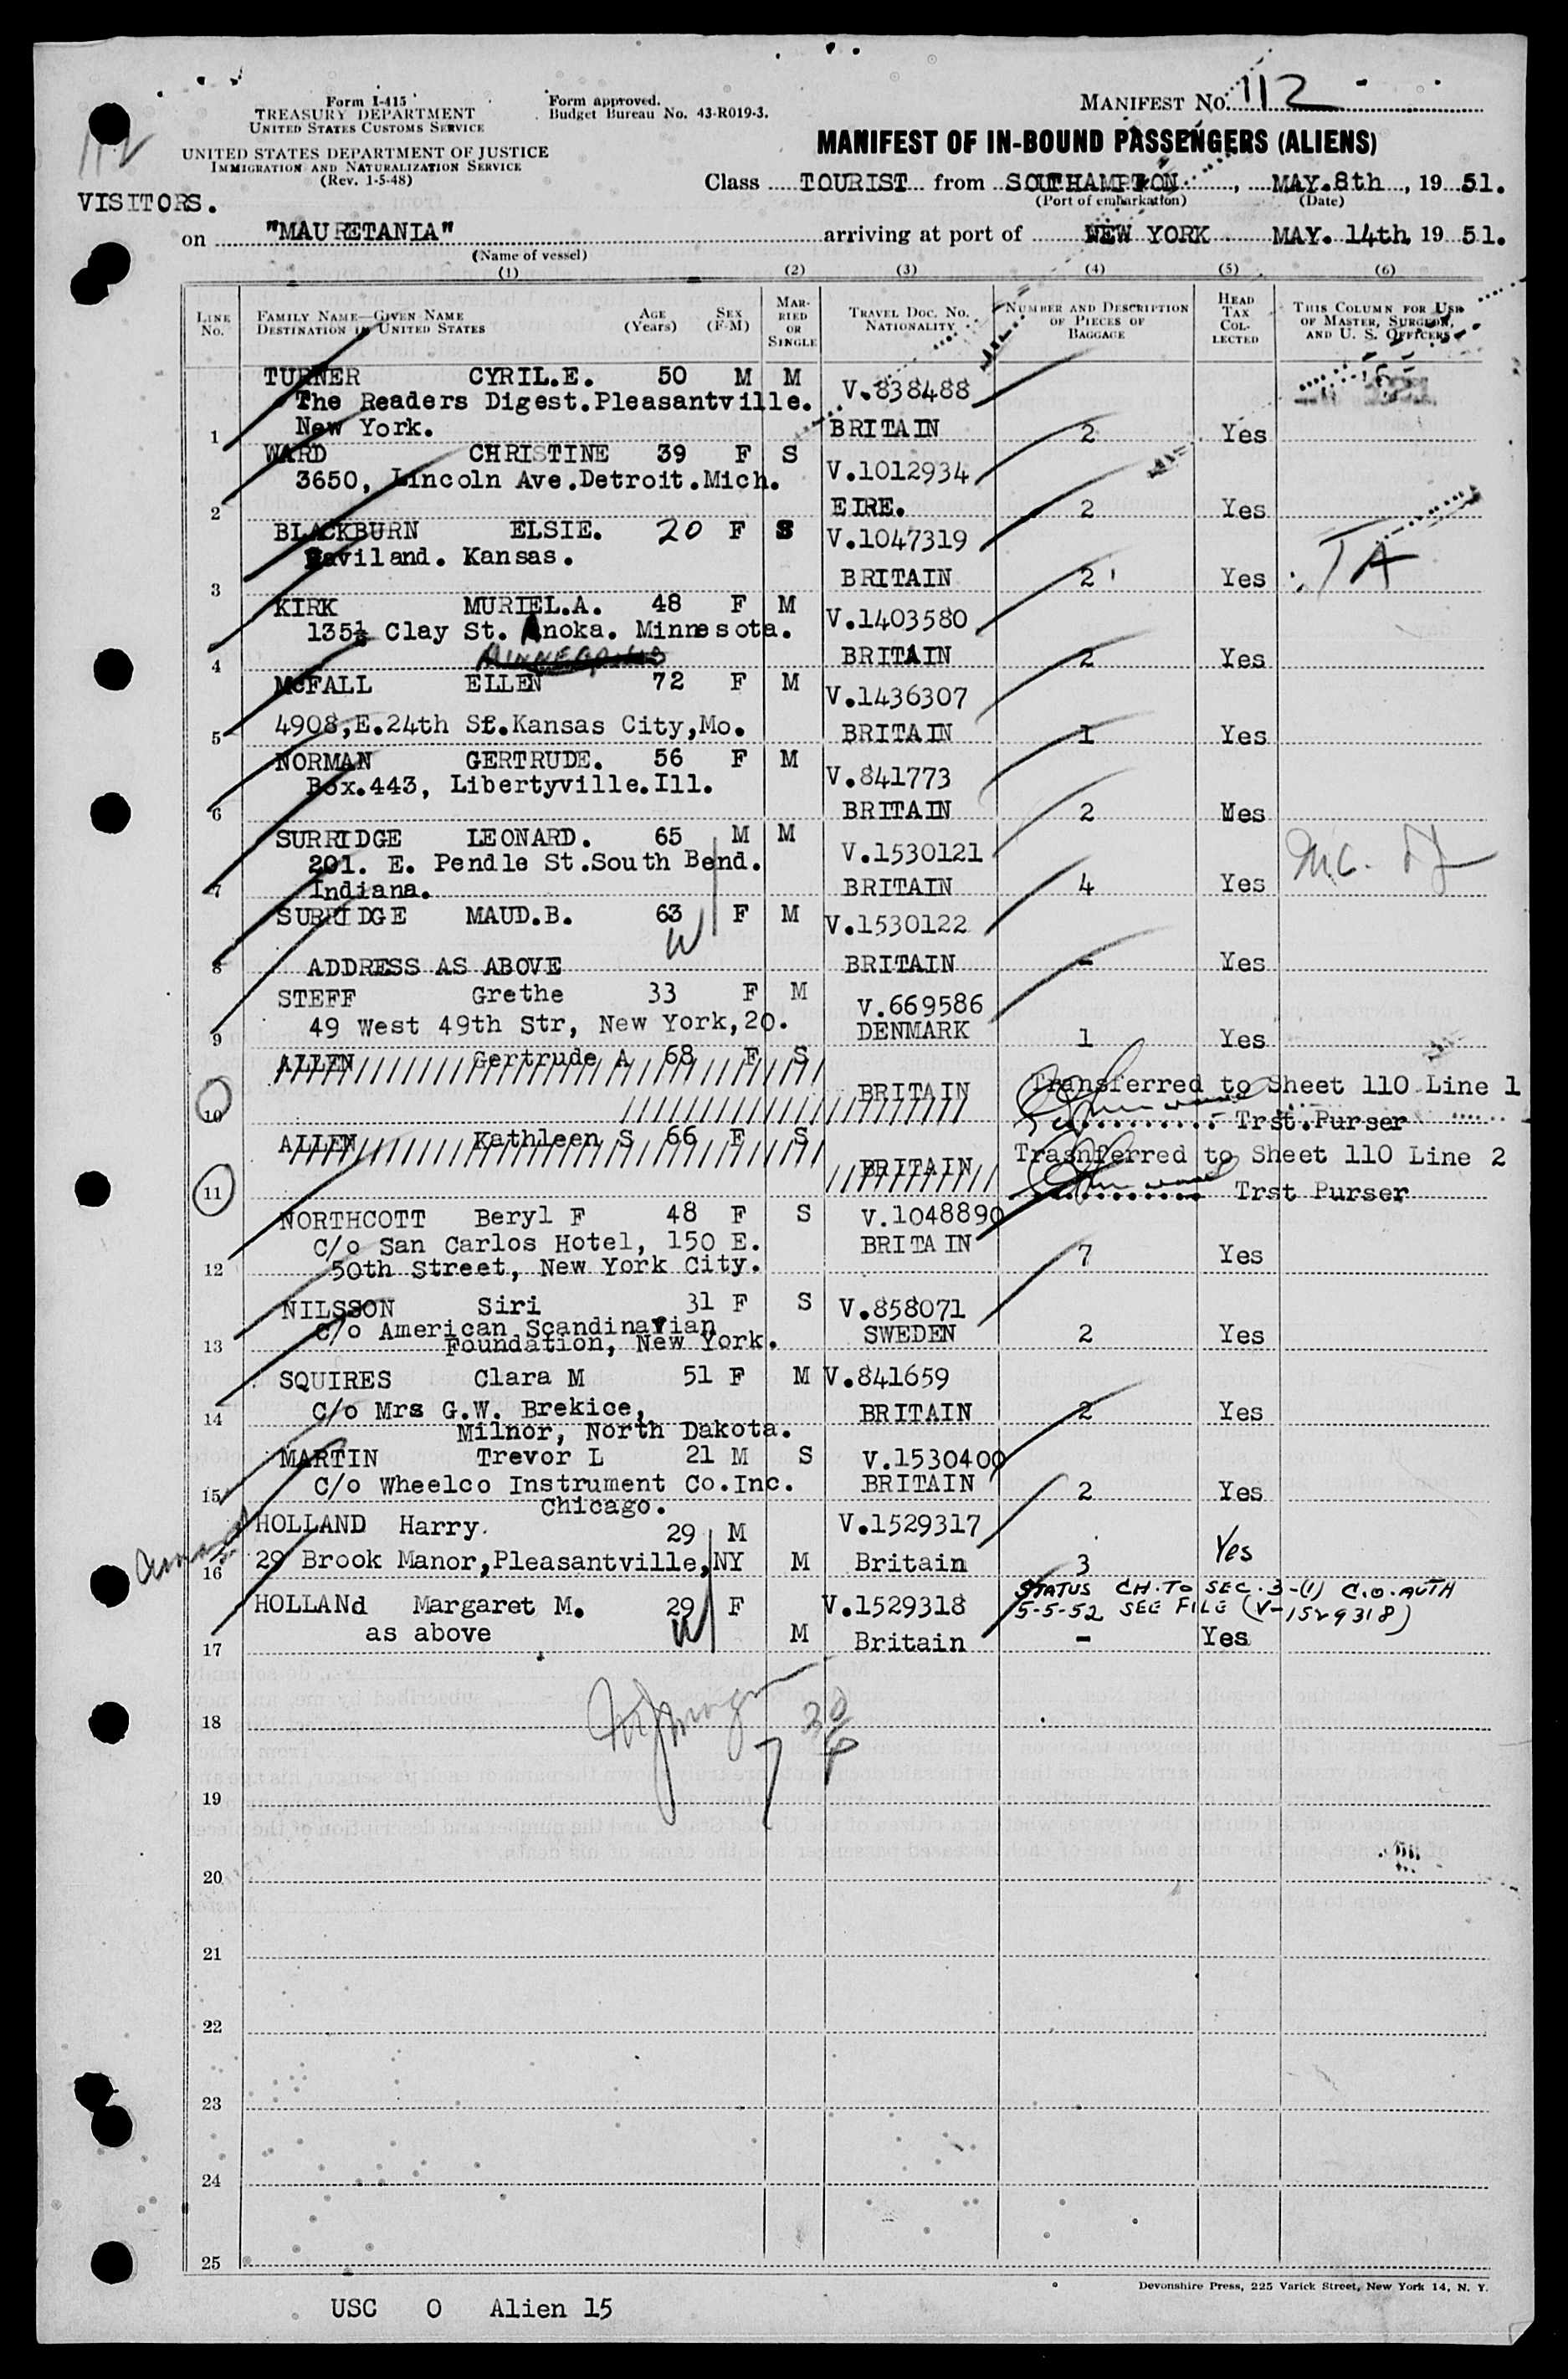 Form I-415
TREASURY DEPARTMENT
UNITED STATES CUSTOMS SERVICE
UNITED STATES DEPARTMENT OF JUSTICE
IMMIGRATION AND NATURALIZATION SERVICE
(Rev. 1-5-48)
Form approved.
Budget Bureau No. 43-R019-3.
MANIFEST NO. 112
MANIFEST OF IN-BOUND PASSENGERS (ALIENS)
112
VISITORS.
Class TOURIST from SOUTHAMPTON, MAY.8th, 19 51.
(Port of embarkation) (Date)
on "MAURETANIA" arriving at port of NEW YORK MAY. 14th 19 51.
(Name of vessel)
(1) (2) (3) (4) (5) (6)
LINE No. FAMILY NAME—GIVEN NAME DESTINATION IN UNITED STATES AGE (Years) SEX (F-M) MARRIED OR SINGLE TRAVEL DOC. NO. NATIONALITY NUMBER AND DESCRIPTION OF PIECES OF BAGGAGE HEAD TAX COLLECTED THIS COLUMN FOR USE OF MASTER, SURGEON, AND U. S. OFFICERS
TURNER CYRIL.E. 50 M M V.838488
The Readers Digest.Pleasantville.
1 New York. BRITAIN 2 Yes
WARD CHRISTINE 39 F S V.1012934
3650, Lincoln Ave.Detroit.Mich.
2 EIRE. 2 Yes
BLACKBURN ELSIE. 20 F S V.1047319
Haviland. Kansas.
3 BRITAIN 2 Yes TA
KIRK MURIEL.A. 48 F M V.1403580
135½ Clay St. Anoka. Minnesota.
4 MINNEAPOLIS BRITAIN 2 Yes
McFALL ELLEN 72 F M V.1436307
5 4908,E.24th St.Kansas City,Mo. BRITAIN 1 Yes
NORMAN GERTRUDE. 56 F M V.841773
Box.443, Libertyville.Ill.
6 BRITAIN 2 Mes
SURRIDGE LEONARD. 65 M M V.1530121
201. E. Pendle St.South Bend.
7 Indiana. BRITAIN 4 Yes
SURRIDGE MAUD.B. 63 F M V.1530122
W
8 ADDRESS AS ABOVE BRITAIN - Yes
STEFF Grethe 33 F M V.669586
49 West 49th Str, New York,20. DENMARK
9 1 Yes
ALLEN Gertrude A 68 F S
BRITAIN Transferred to Sheet 110 Line 1
10 Trst.Purser
ALLEN Kathleen S 66 F S
BRITAIN Trasnferred to Sheet 110 Line 2
11 Trst Purser
NORTHCOTT Beryl F 48 F S V.1048890
C/o San Carlos Hotel, 150 E. BRITAIN
12 50th Street, New York City. 7 Yes
NILSSON Siri 31 F S V.858071
C/o American Scandinavian SWEDEN
13 Foundation, New York. 2 Yes
SQUIRES Clara M 51 F M V.841659
14 C/o Mrs G.W. Brekice, BRITAIN 2 Yes
Milnor, North Dakota.
MARTIN Trevor L 21 M S V.1530400
C/o Wheelco Instrument Co.Inc. BRITAIN
15 Chicago. 2 Yes
HOLLAND Harry. 29 M V.1529317
16 29 Brook Manor,Pleasantville,NY M Britain 3 Yes
STATUS CH. TO SEC. 3-(1) C.O. AUTH
5-5-52 SEE FILE (V-1529318)
HOLLANd Margaret M. 29 F V.1529318
W
17 as above M Britain - Yes
18
19
20
21
22
23
24
25
Devonshire Press, 225 Varick Street, New York 14, N. Y.
USC 0 Alien 15